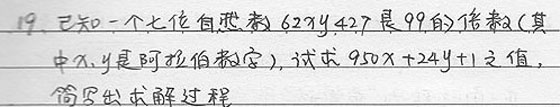 19. 已知一个七位自然数62xy427是99的倍数(其
中x、y是阿拉伯数字),试求950x+24y+1之值,
简写出求解过程